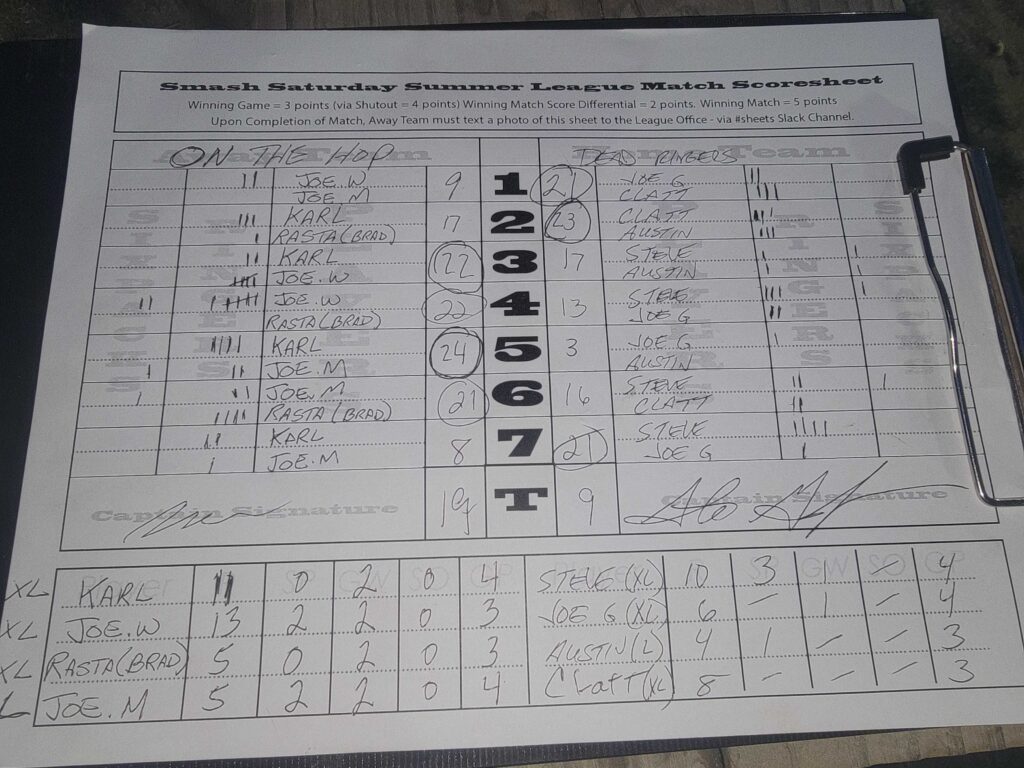 Smash Saturday Summer League Match Scoresheet
Winning Game = 3 points (via Shutout = 4 points) Winning Match Score Differential = 2 points. Winning Match = 5 points
Upon Completion of Match, Away Team must text a photo of this sheet to the League Office - via #sheets Slack Channel.
ON THE HOP DEAD RINGERS
JOE.W 9 1 21 JOE G
JOE.M CLATT
KARL 17 2 23 CLATT
RASTA(BRAD) AUSTIN
KARL 22 3 17 STEVE
JOE.W AUSTIN
JOE.W 22 4 13 STEVE
RASTA(BRAD) JOE G
KARL 24 5 3 JOE G
JOE.M AUSTIN
JOE.M 21 6 16 STEVE
RASTA(BRAD) CLATT
KARL 8 7 21 STEVE
JOE.M JOE G
Captain Signature 19 T 9 Captain Signature
XL KARL 11 0 2 0 4 STEVE(XL) 10 3 1 - 4
XL JOE.W 13 2 2 0 3 JOE G (XL) 6 - 1 - 4
XL RASTA(BRAD) 5 0 2 0 3 AUSTIN(L) 4 1 - - 3
L JOE.M 5 2 2 0 4 CLATT(XL) 8 - - - 3